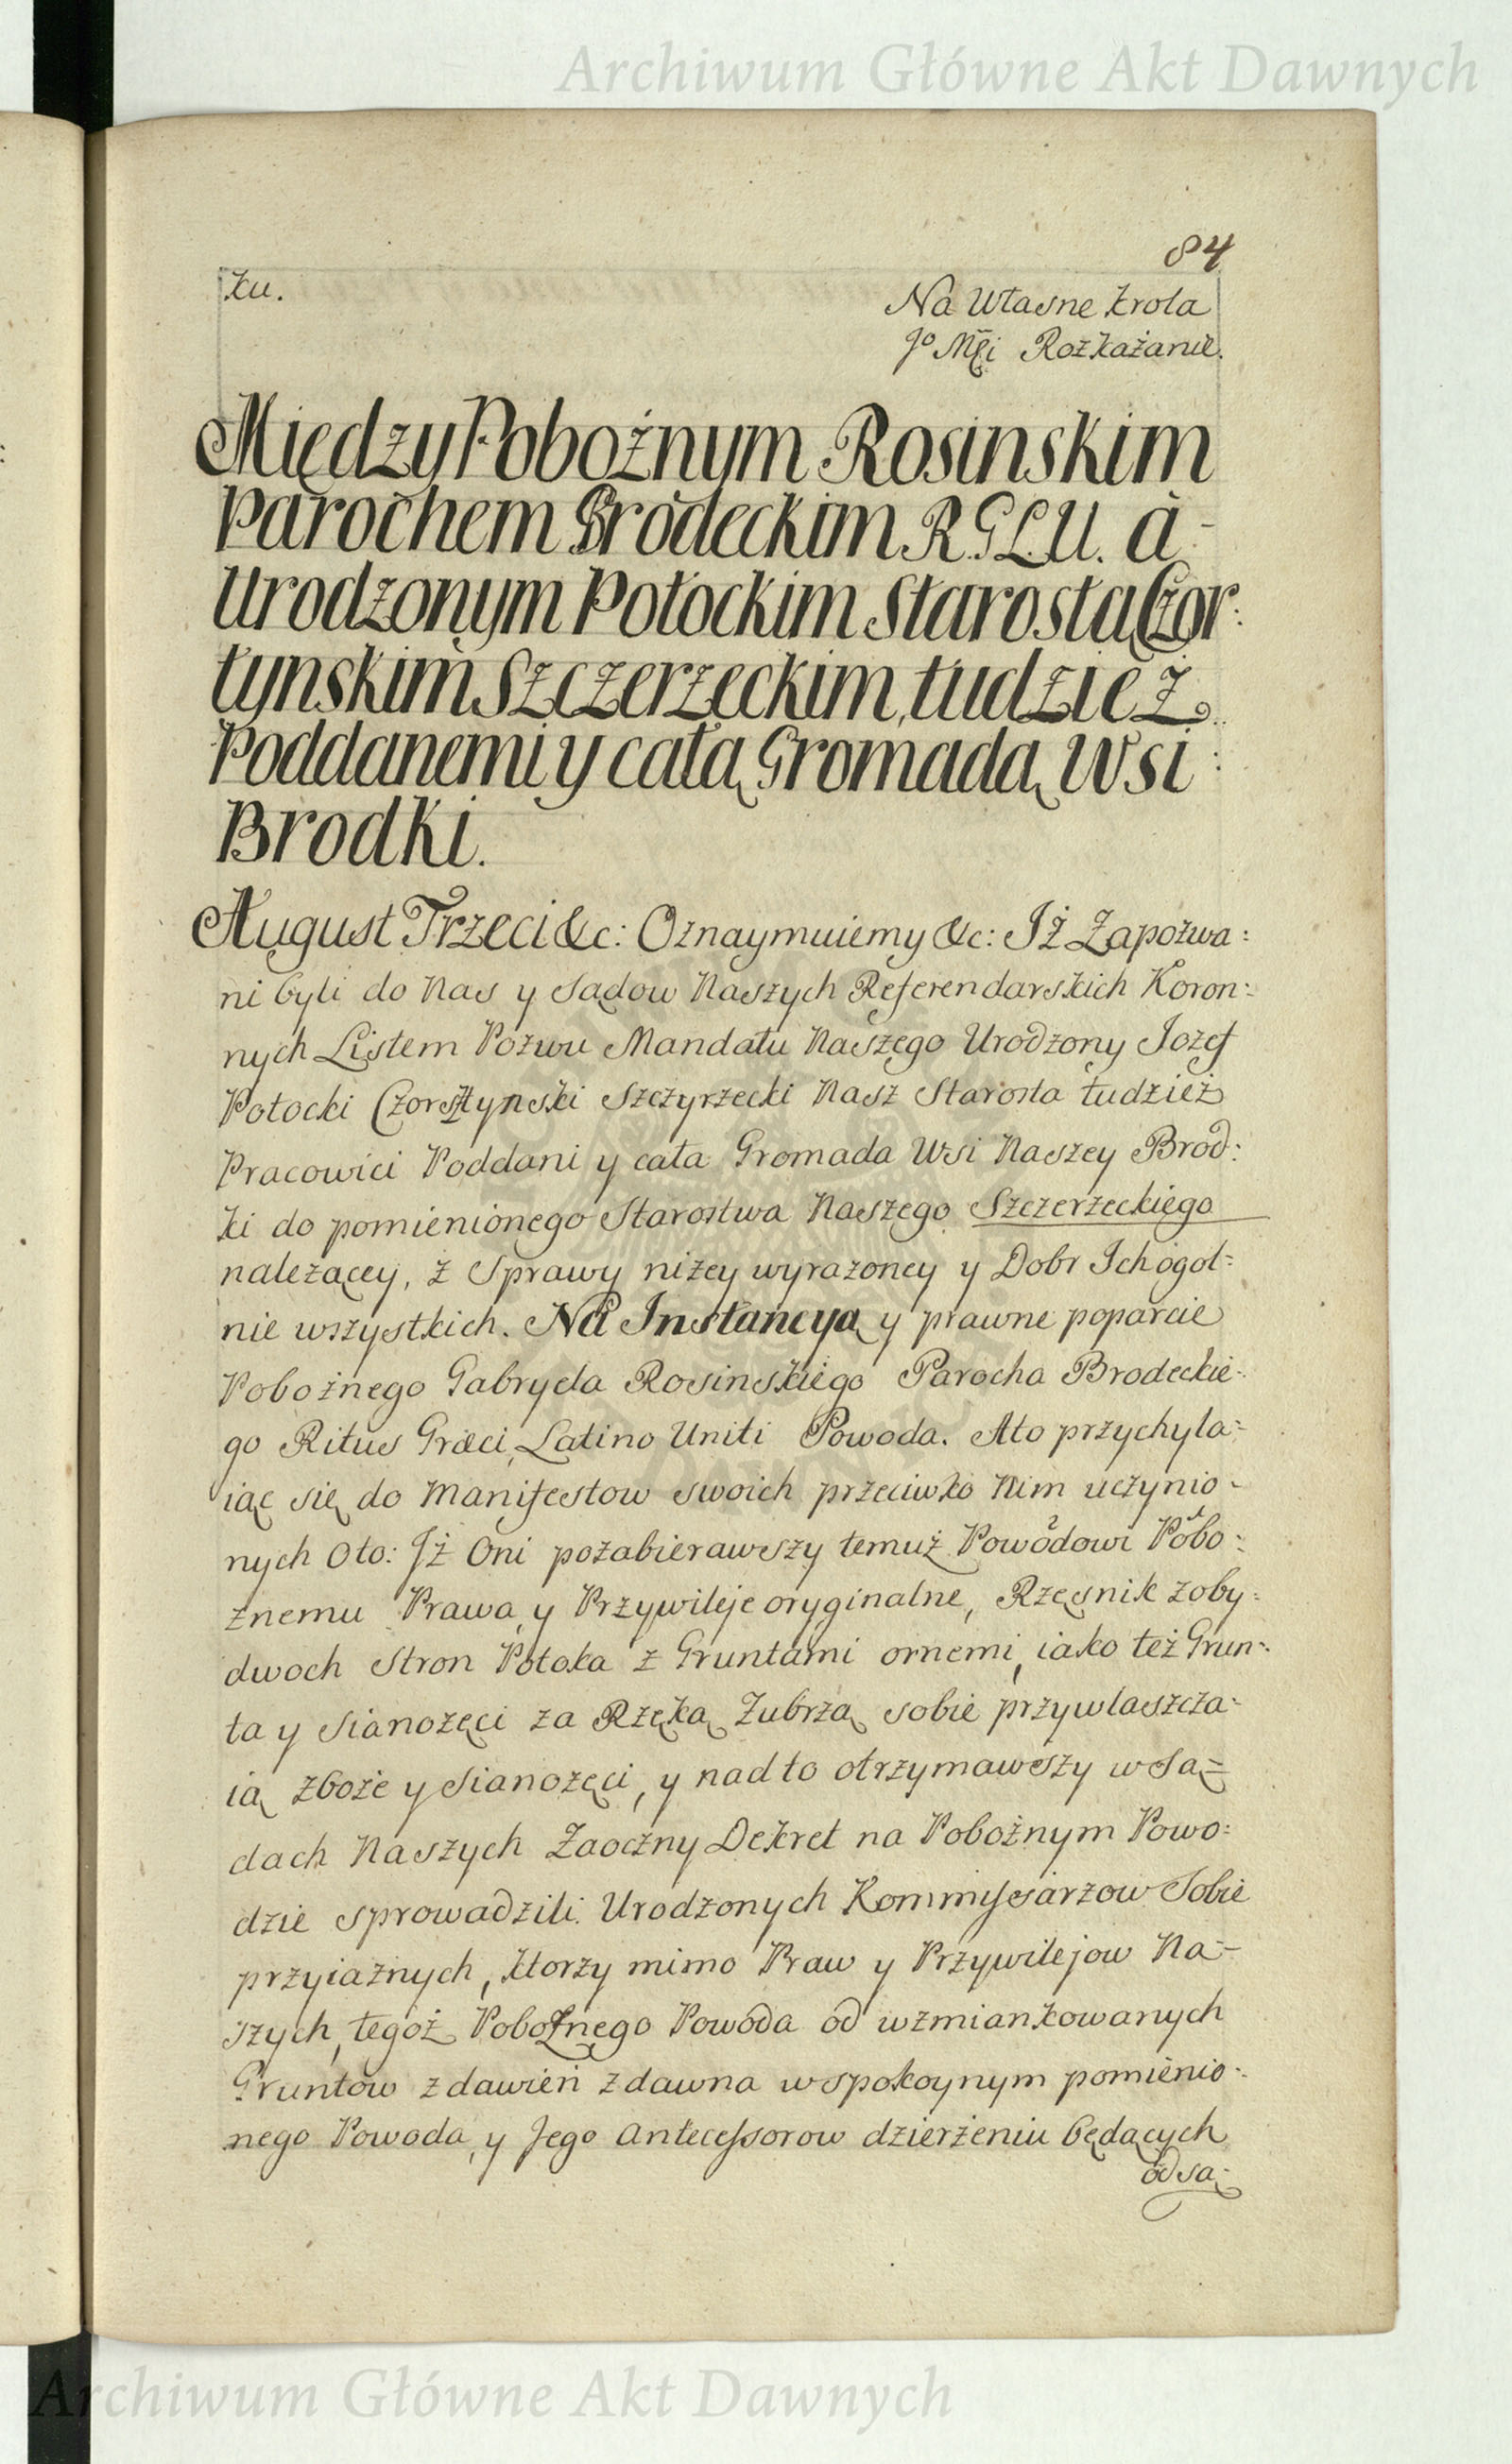 Archiwum Główne Akt Dawnych
84
Ku.
Na Własne Krola
Jº Mći Rozkażanie.
Między Pobożnym Rosinskim
Parochem Brodeckim R.G.L.U. a-
Urodzonym Potockim Starostą Czor:
tynskim Szczerzeckim, tudziez
Poddanemi y całą Gromadą Wsi:
Brodki.
August Trzeci &c: Oznaymuiemy &c: Iż Zapozwa:
ni byli do Nas y Sądow Naszych Referendarskich Koron:
nych Listem Pozwu Mandatu Naszego Urodzony Jozef
Potocki Czorsztynski Szczyrzecki Nasz Starosta tudzież
Pracowici Poddani y cała Gromada Wsi Naszey Brod:
ki do pomienionego Starostwa Naszego Szczerzeckiego
nalezącey, z Sprawy niżey wyrazoney y Dobr Ich ogol:
nie wszystkich. Na Instancyą y prawne poparcie
Pobożnego Gabryela Rosinskiego Parocha Brodeckie:
go Ritus Græci, Latino Uniti Powoda. Ato przychyla:
iąc się do Manifestow swoich przeciwko Nim uczynio-
nych Oto: Iż Oni pozabierawszy temuż Powodowi Pobo:
żnemu Prawa y Przywileje oryginalne, Rzęsnik zoby:
dwoch Stron Potoka z Gruntami ornemi, iako też Grun:
ta y Sianozęci za Rzęką Zubrzą sobie przywlaszcza:
ią zboże y Sianozęci, y nad to otrzymawszy w Są=
dach Naszych Zaoczny Dekret na Pobożnym Powo:
dzie sprowadzili Urodzonych Kommissarzow Sobie
przyiaznych, ktorzy mimo Praw y Przywilejow Na-
szych, tegoż Pobożnego Powoda od wzmiankowanych
Gruntow zdawień zdawna w spokoynym pomienio:
nego Powoda, y Jego Antecessorow dzierżeniu będących
odsą:
Archiwum Główne Akt Dawnych